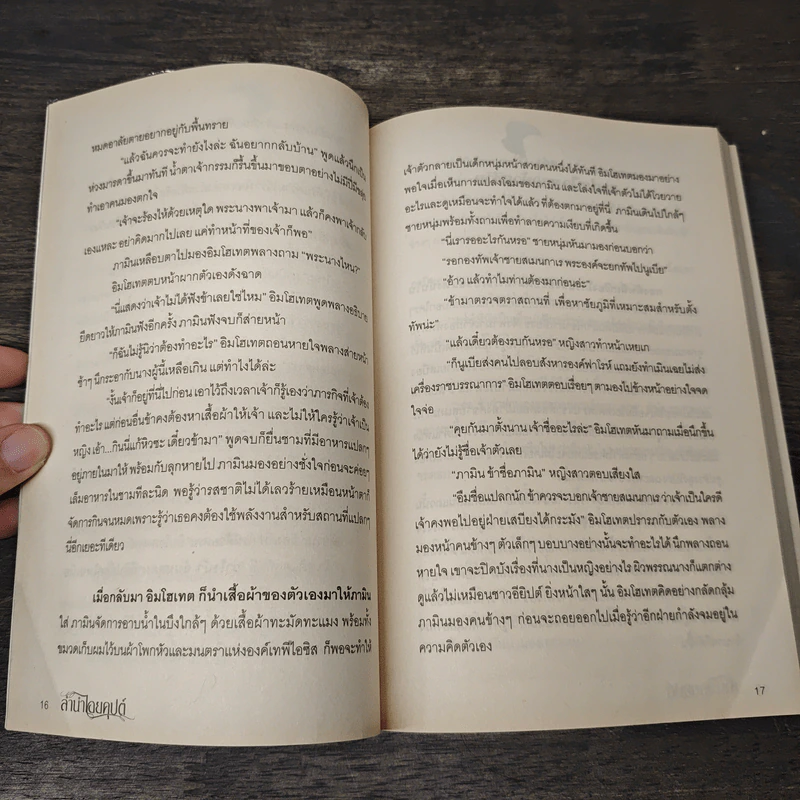 หมดอาลัยตายอยากอยู่กับพื้นทราย
"แล้วฉันควรจะทำยังไงล่ะ ฉันอยากกลับบ้าน" พูดแล้วนึกเป็น
ห่วงมารดาขึ้นมาทันที น้ำตาเจ้ากรรมก็รื้นขึ้นมาขอบตาอย่างไม่มีปี่มีขลุ่ย
ทำเอาคนมองตกใจ
"เจ้าจะร้องไห้ด้วยเหตุใด พระนางพาเจ้ามา แล้วก็คงพาเจ้ากลับ
เองแหละ อย่าคิดมากไปเลย แค่ทำหน้าที่ของเจ้าก็พอ"
ภามินเหลือบตาไปมองอิมโฮเทตพลางถาม "พระนางไหน"
อิมโฮเทตตบหน้าผากตัวเองดังฉาด
"นี่แสดงว่าเจ้าไม่ได้ฟังข้าเลยใช่ไหม" อิมโฮเทตพูดพลางอธิบาย
ยืดยาวให้ภามินฟังอีกครั้ง ภามินฟังจบก็ส่ายหน้า
"ก็ฉันไม่รู้นี่ว่าต้องทำอะไร" อิมโฮเทตถอนหายใจพลางส่ายหน้า
ช้าๆ นึกระอากับนางผู้นี้เหลือเกิน แต่ทำไงได้ล่ะ
"งั้นเจ้าก็อยู่ที่นี่ไปก่อน เอาไว้ถึงเวลาเจ้าก็รู้เองว่าภารกิจที่เจ้าต้อง
ทำอะไร แต่ก่อนอื่นข้าคงต้องหาเสื้อผ้าให้เจ้า และไม่ให้ใครรู้ว่าเจ้าเป็น
หญิง เอ้า...กินนี่แก้หิวซะ เดี๋ยวข้ามา" พูดจบก็ยื่นชามที่มีอาหารแปลกๆ
อยู่ภายในมาให้ พร้อมกับลุกหายไป ภามินมองอย่างชั่งใจก่อนจะค่อยๆ
เล็มอาหารในชามทีละนิด พอรู้ว่ารสชาติไม่ได้เลวร้ายเหมือนหน้าตาก็
จัดการกินจนหมดเพราะรู้ว่าเธอคงต้องใช้พลังงานสำหรับสถานที่แปลกๆ
นี่อีกเยอะทีเดียว
เมื่อกลับมา อิมโฮเทต ก็นำเสื้อผ้าของตัวเองมาให้ภามิน
ใส่ ภามินจัดการอาบน้ำในบึงใกล้ๆ ด้วยเสื้อผ้าทะมัดทะแมง พร้อมทั้ง
ขมวดเก็บผมไว้บนผ้าโพกหัวและมนตราแห่งองค์เทพีไอซิส ก็พอจะทำให้
16 ลำนำไอยคุปต์
เจ้าตัวกลายเป็นเด็กหนุ่มหน้าสวยคนหนึ่งได้ทันที อิมโฮเทตมองมาอย่าง
พอใจเมื่อเห็นการแปลงโฉมของภามิน และโล่งใจที่เจ้าตัวไม่ได้โวยวาย
อะไรและดูเหมือนจะทำใจได้แล้ว ที่ต้องตกมาอยู่ที่นี่ ภามินเดินไปใกล้ๆ
ชายหนุ่มพร้อมทั้งถามเพื่อทำลายความเงียบที่เกิดขึ้น
"นี่เรารออะไรกันหรอ" ชายหนุ่มหันมามองก่อนบอกว่า
"รอกองทัพเจ้าชายสเมนการเ พระองค์จะยกทัพไปนูเบีย"
"อ้าว แล้วทำไมท่านต้องมาก่อนอ่ะ"
"ข้ามาตรวจตราสถานที่ เพื่อหาชัยภูมิที่เหมาะสมสำหรับตั้ง
ทัพน่ะ"
"แล้วเดี๋ยวต้องรบกันหรอ" หญิงสาวทำหน้าเหยเก
"ก็นูเบียส่งคนไปลอบสังหารองค์ฟาโรห์ แถมยังทำเมินเฉยไม่ส่ง
เครื่องราชบรรณาการ" อิมโฮเทตตอบเรื่อยๆ ตามองไปข้างหน้าอย่างใจจด
ใจจ่อ
"คุยกันมาตั้งนาน เจ้าชื่ออะไรล่ะ" อิมโฮเทตหันมาถามเมื่อนึกขึ้น
ได้ว่ายังไม่รู้ชื่อเจ้าตัวเลย
"ภามิน ข้าชื่อภามิน" หญิงสาวตอบเสียงใส
"อืมชื่อแปลกนัก ข้าควรจะบอกเจ้าชายสเมนการเว่าเจ้าเป็นใครดี
เจ้าคงพอไปอยู่ฝ่ายเสบียงได้กระมัง" อิมโฮเทตปรารภกับตัวเอง พลาง
มองหน้าคนข้างๆ ตัวเล็กๆ บอบบางอย่างนั้นจะทำอะไรได้ นึกพลางถอน
หายใจ เขาจะปิดบังเรื่องที่นางเป็นหญิงอย่างไร ผิวพรรณนางก็แตกต่าง
ดูแล้วไม่เหมือนชาวอียิปต์ ยิ่งหน้าใสๆ นั้น อิมโฮเทตคิดอย่างกลัดกลุ้ม
ภามินมองคนข้างๆ ก่อนจะถอยออกไปเมื่อรู้ว่าอีกฝ่ายกำลังจมอยู่ใน
ความคิดตัวเอง
17